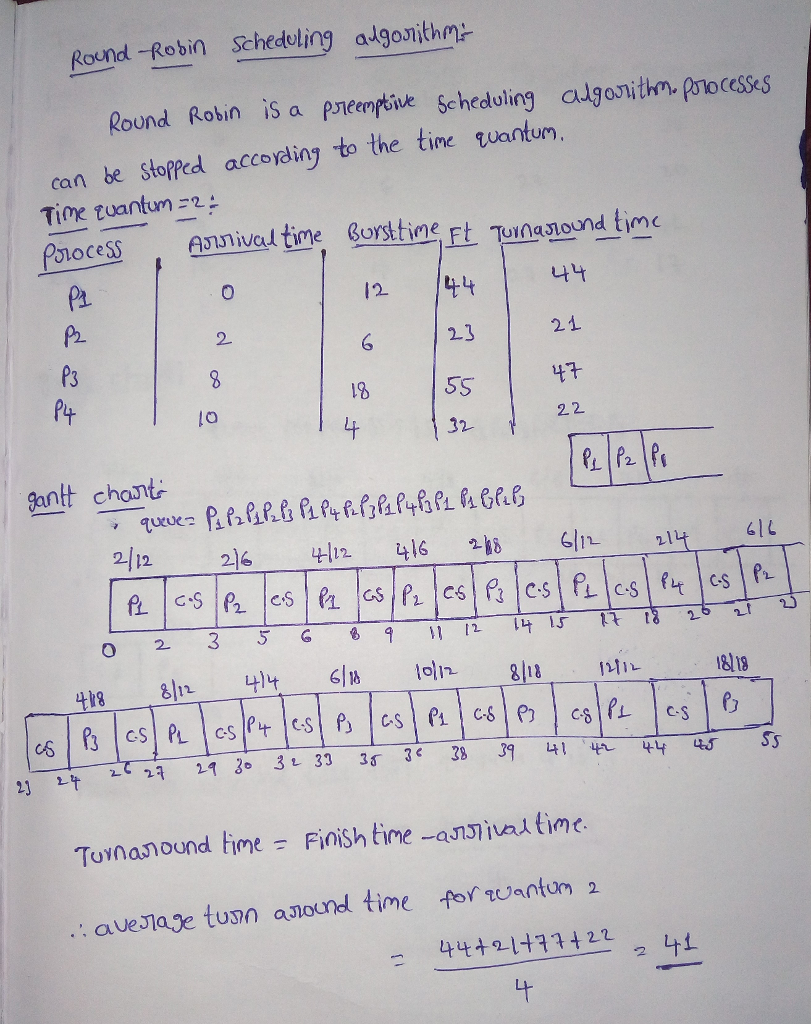 Round-Robin scheduling algorithm:-
Round Robin is a preemptive scheduling algorithm. processes
can be stopped according to the time quantum.
Time quantum =2:
Process Arrival time Burst time Ft Turnaround time
P1 0 12 44 44
P2 2 6 23 21
P3 8 18 55 47
P4 10 4 32 22
P1 P2 P1
gantt chart:
queue= P1 P2 P1 P2 P3 P1 P4 P2 P3 P1 P4 P3 P1 P3 P1 P3
2/12 2/6 4/12 4/6 2/18 6/12 2/4 6/6
P1 C.S P2 C.S P1 C.S P2 C.S P3 C.S P1 C.S P4 C.S P2
0 2 3 5 6 8 9 11 12 14 15 17 18 20 21 23
4/18 8/12 4/4 6/18 10/12 8/18 12/12 18/18
C.S P3 C.S P1 C.S P4 C.S P3 C.S P1 C.S P3 C.S P1 C.S P3
23 24 26 27 29 30 32 33 35 36 38 39 41 42 44 45 55
Turnaround time = Finish time - arrival time.
∴ average turn around time for quantum 2
= 44+21+77+22 = 41
4